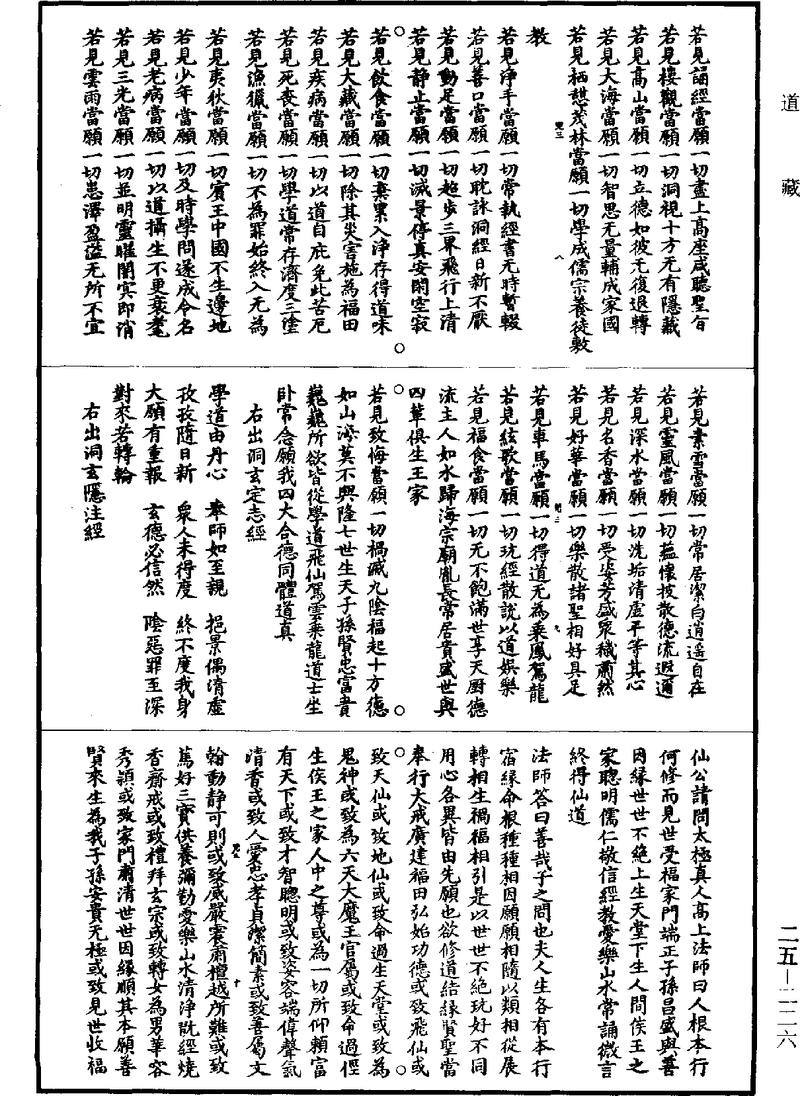 道藏
若見誦經當願一切盡上高座咸聽聖旨
若見樓觀當願一切洞視十方无有隱藏
若見高山當願一切立德如彼无復退轉
若見大海當願一切智思无量輔成家國
若見栖憩茂林當願一切學成儒宗養徒敷
教
若見淨手當願一切常執經書无時暫輟
若見善口當願一切耽詠洞經日新不厭
若見動足當願一切超步三界飛行上清
若見静止當願一切滅景停真安閑空寂
若見飲食當願一切棄累入淨存得道味
若見大藏當願一切除其災害施為福田
若見疾病當願一切以道自庇免此苦厄
若見死喪當願一切學道常存濟度三塗
若見漁獵當願一切不為罪始終入无為
若見夷狄當願一切賓王中國不生邊地
若見少年當願一切及時學問遂成令名
若見老病當願一切以道攝生不更衰耄
若見三光當願一切並明靈曜闇冥即消
若見雲雨當願一切惠澤盈溢无所不宜
若見素雪當願一切常居潔白逍遥自在
若見靈風當願一切蘊懷披散德流遐邇
若見深水當願一切洗垢清虛平等其心
若見名香當願一切受姿芳盛衆穢肅然
若見好華當願一切樂散諸聖相好具足
若見車馬當願一切得道无為乘鳳駕龍
若見絃歌當願一切玩經散說以道娛樂
若見福食當願一切无不飽滿世享天厨德
流主人如水歸海宗廟胤長常居貴盛世與
四軰俱生王家
若見致悔當願一切禍滅九陰福起十方德
如山海莫不興隆七世生天子孫賢忠富貴
巍巍所欲皆從學道飛仙駕雲乘龍道士坐
卧常念願我四大合德同體道真
右出洞玄定志經
學道由丹心 奉師如至親 挹景偶清虛
孜孜隨日新 衆人未得度 終不度我身
大願有重報 玄德必信然 陰惡罪至深
對來若轉輪
右出洞玄隱注經
仙公請問太極真人高上法師曰人根本行
何修而見世受福家門端正子孫昌盛與善
因緣世世不絶上生天堂下生人間侯王之
家聰明儒仁敬信經教愛樂山水常誦微言
終得仙道
法師答曰善哉子之問也夫人生各有本行
宿緣命根種種相因願願相隨以類相從展
轉相生禍福相引是以世世不絶玩好不同
用心各異皆由先願也欲修道結緣賢聖當
奉行大戒廣建福田弘始功德或致飛仙或
致天仙或致地仙或致命過生天堂或致為
鬼神或致為六天大魔王官屬或致命過徑
生侯王之家人中之尊或為一切所仰賴富
有天下或致才智聰明或致姿容端偉聲氣
清香或致人愛忠孝貞潔簡素或致善屬文
翰動静可則或致威嚴震肅檀越所難或致
篤好三寶供養彌勤愛樂山水清淨翫經燒
香齋戒或致禮拜玄宗或致轉女為男華容
秀穎或致家門肅清世世因緣順其本願善
賢來生為我子孫安貴无極或致見世收福
二五—二二六